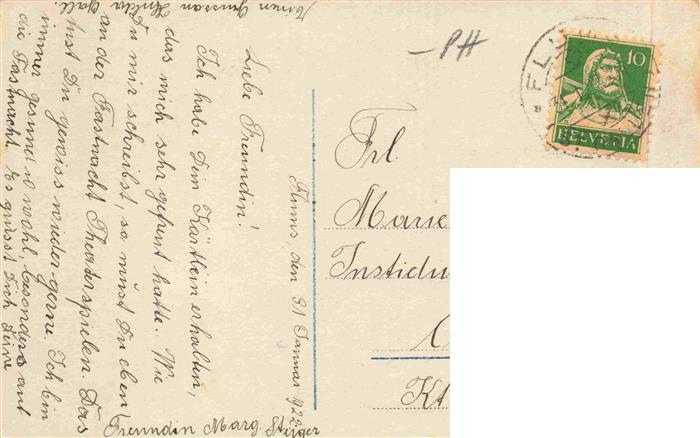 Flums, den 31 Januar 1922.
Liebe Freundin!
Ich habe Dein Kärtlein erhalten,
das mich sehr gefreut hatte. Wie
Du mir schreibst, so must Du eben
an der Fastnacht Theaterspielen. Das
tust Du gewiss wieder gerne. Ich bin
immer gesund u wohl, besonders auf
die Fastnacht. Es grüsst Dich Deine
Freundin Marg.
PH
10
HELVETIA
Frl.
Marie
Institu
Kt